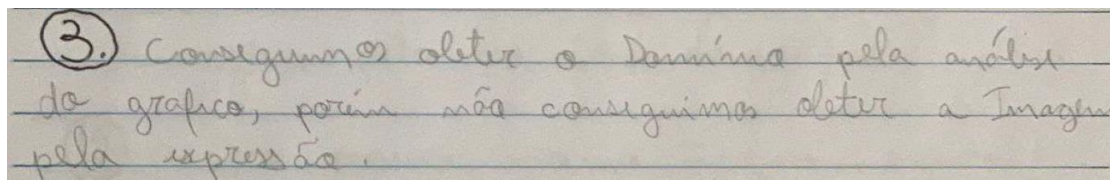 3. Conseguimos obter o Domínio pela análise
do gráfico, porém não conseguimos obter a Imagem
pela expressão.